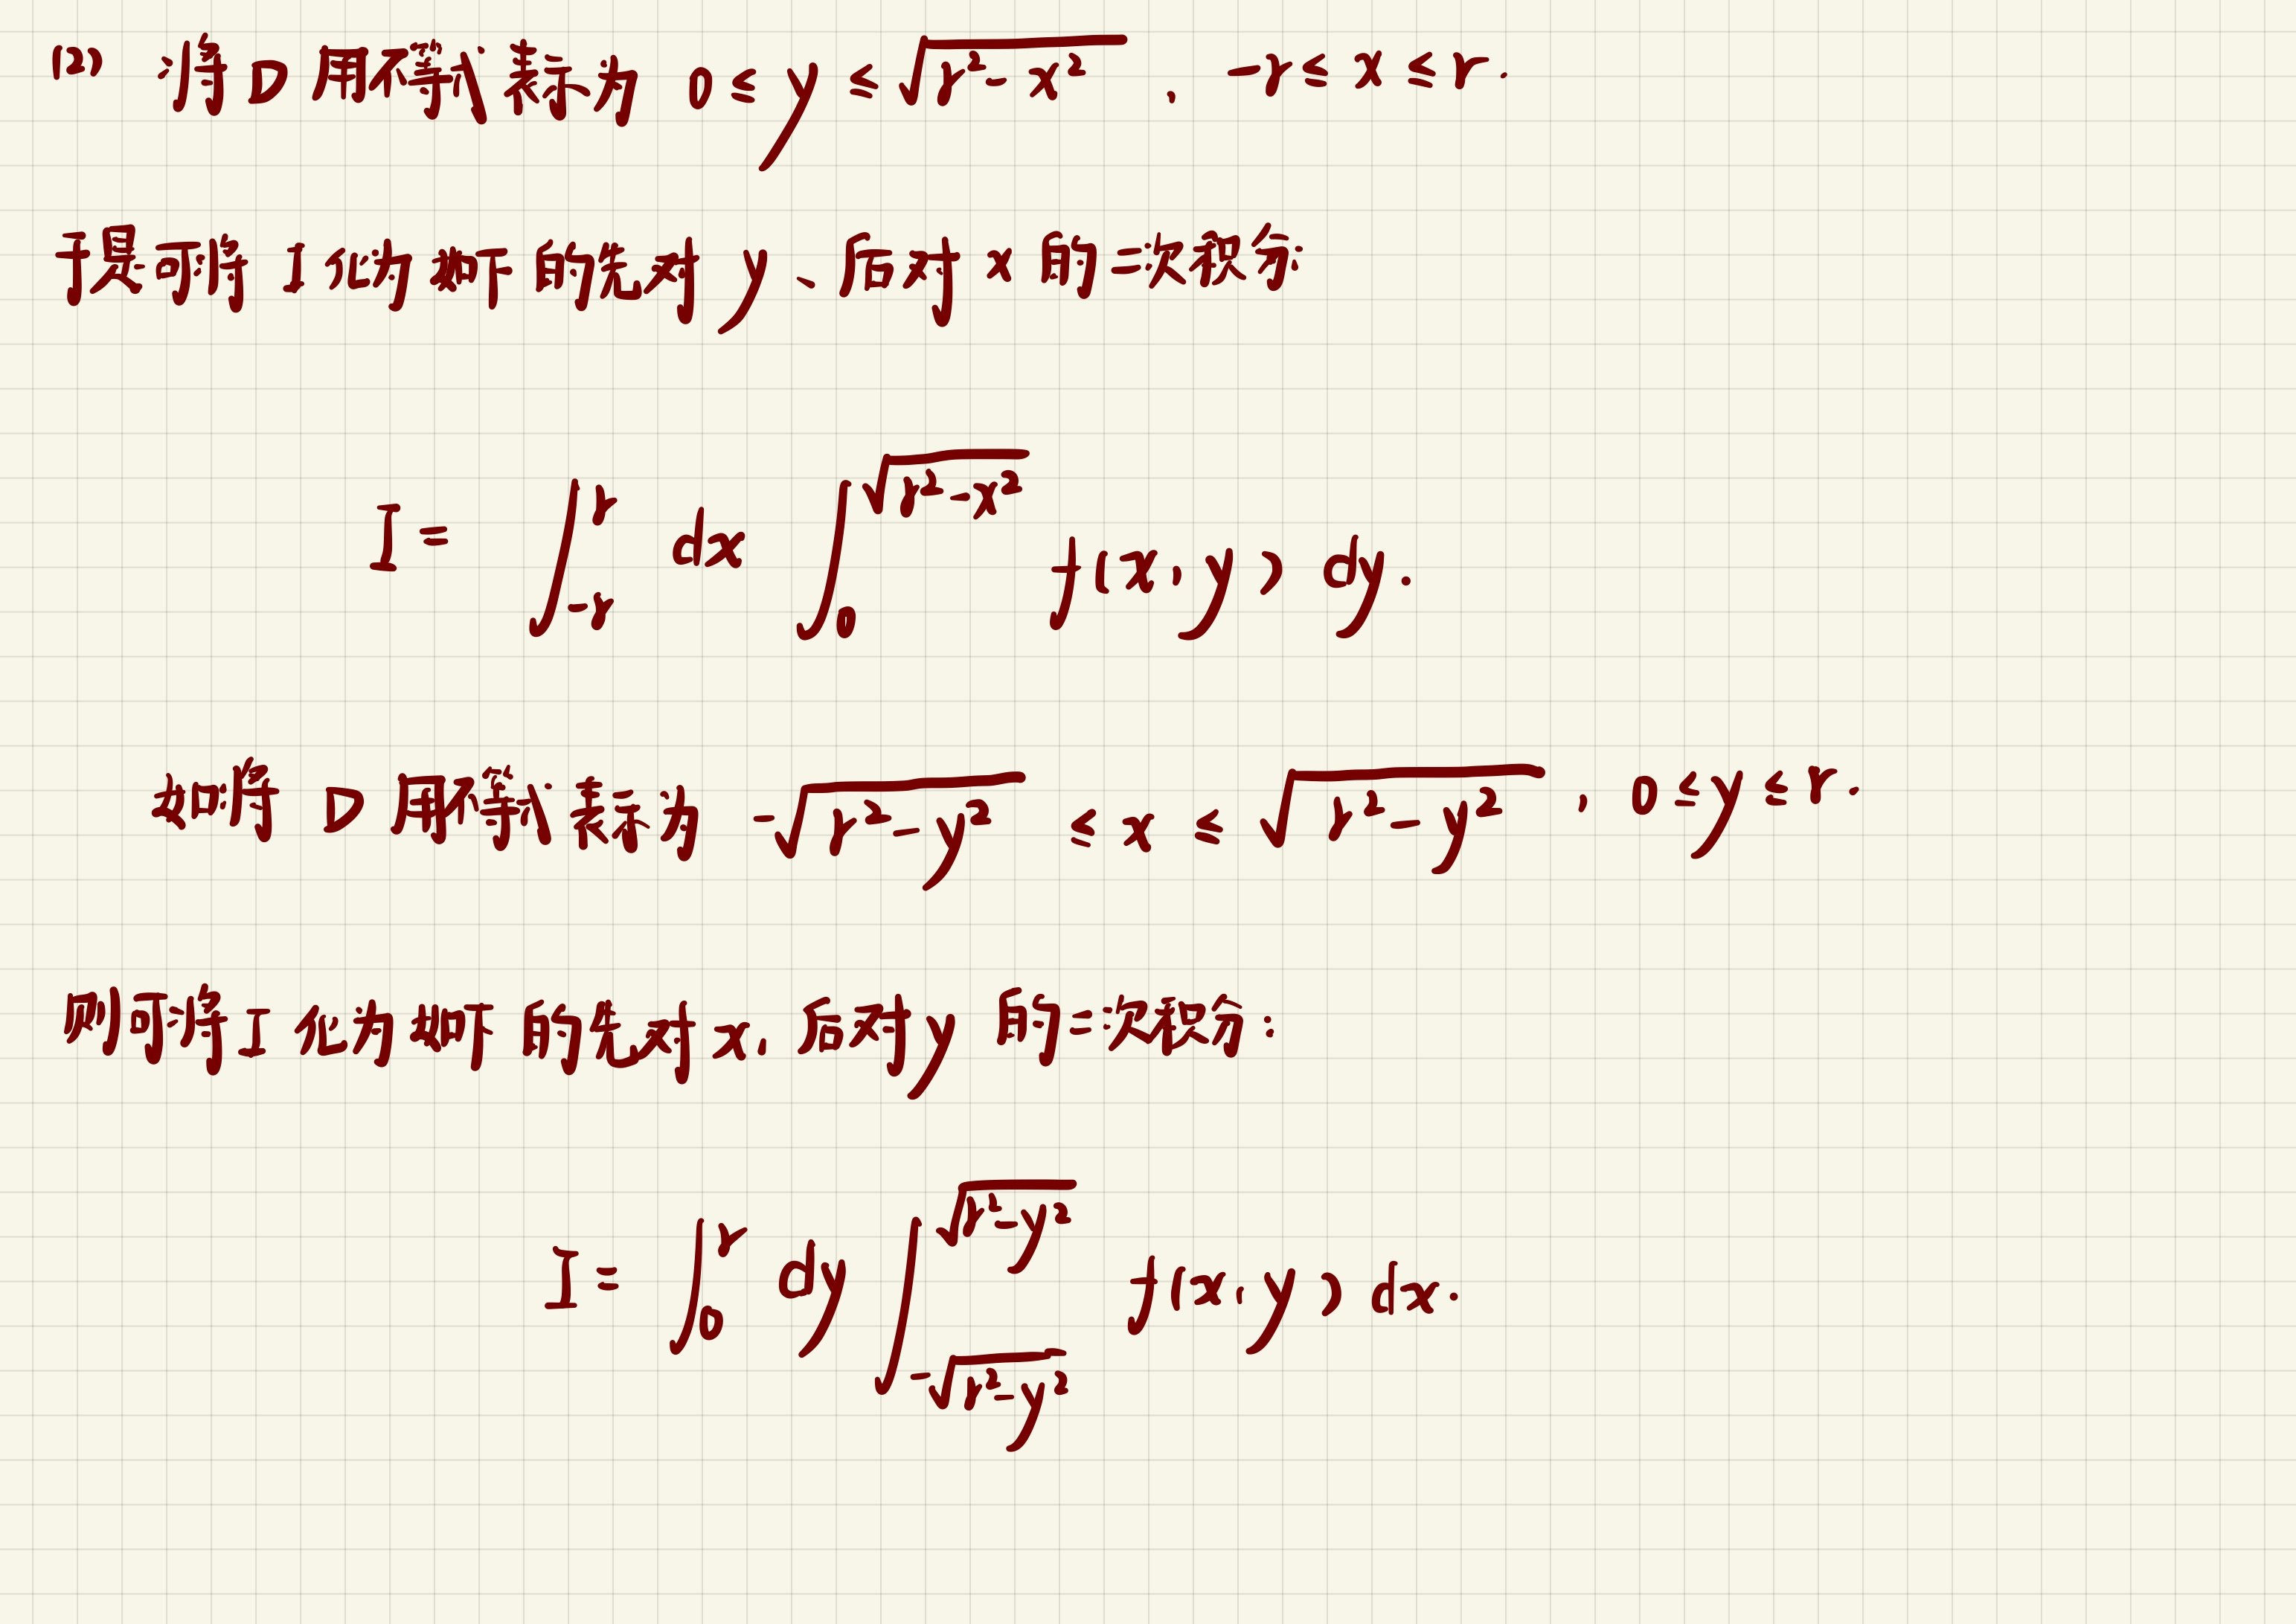 (2) 将D用不等式表示为 0 ≤ y ≤ √(r²-x²) , -r ≤ x ≤ r.
于是可将 I 化为如下的先对y、后对x的二次积分:
I = ∫_{-r}^{r} dx ∫_{0}^{√(r²-x²)} f(x,y) dy.
如将 D 用不等式表示为 -√(r²-y²) ≤ x ≤ √(r²-y²) , 0 ≤ y ≤ r.
则可将 I 化为如下的先对x、后对y的二次积分:
I = ∫_{0}^{r} dy ∫_{-√(r²-y²)}^{√(r²-y²)} f(x,y) dx.